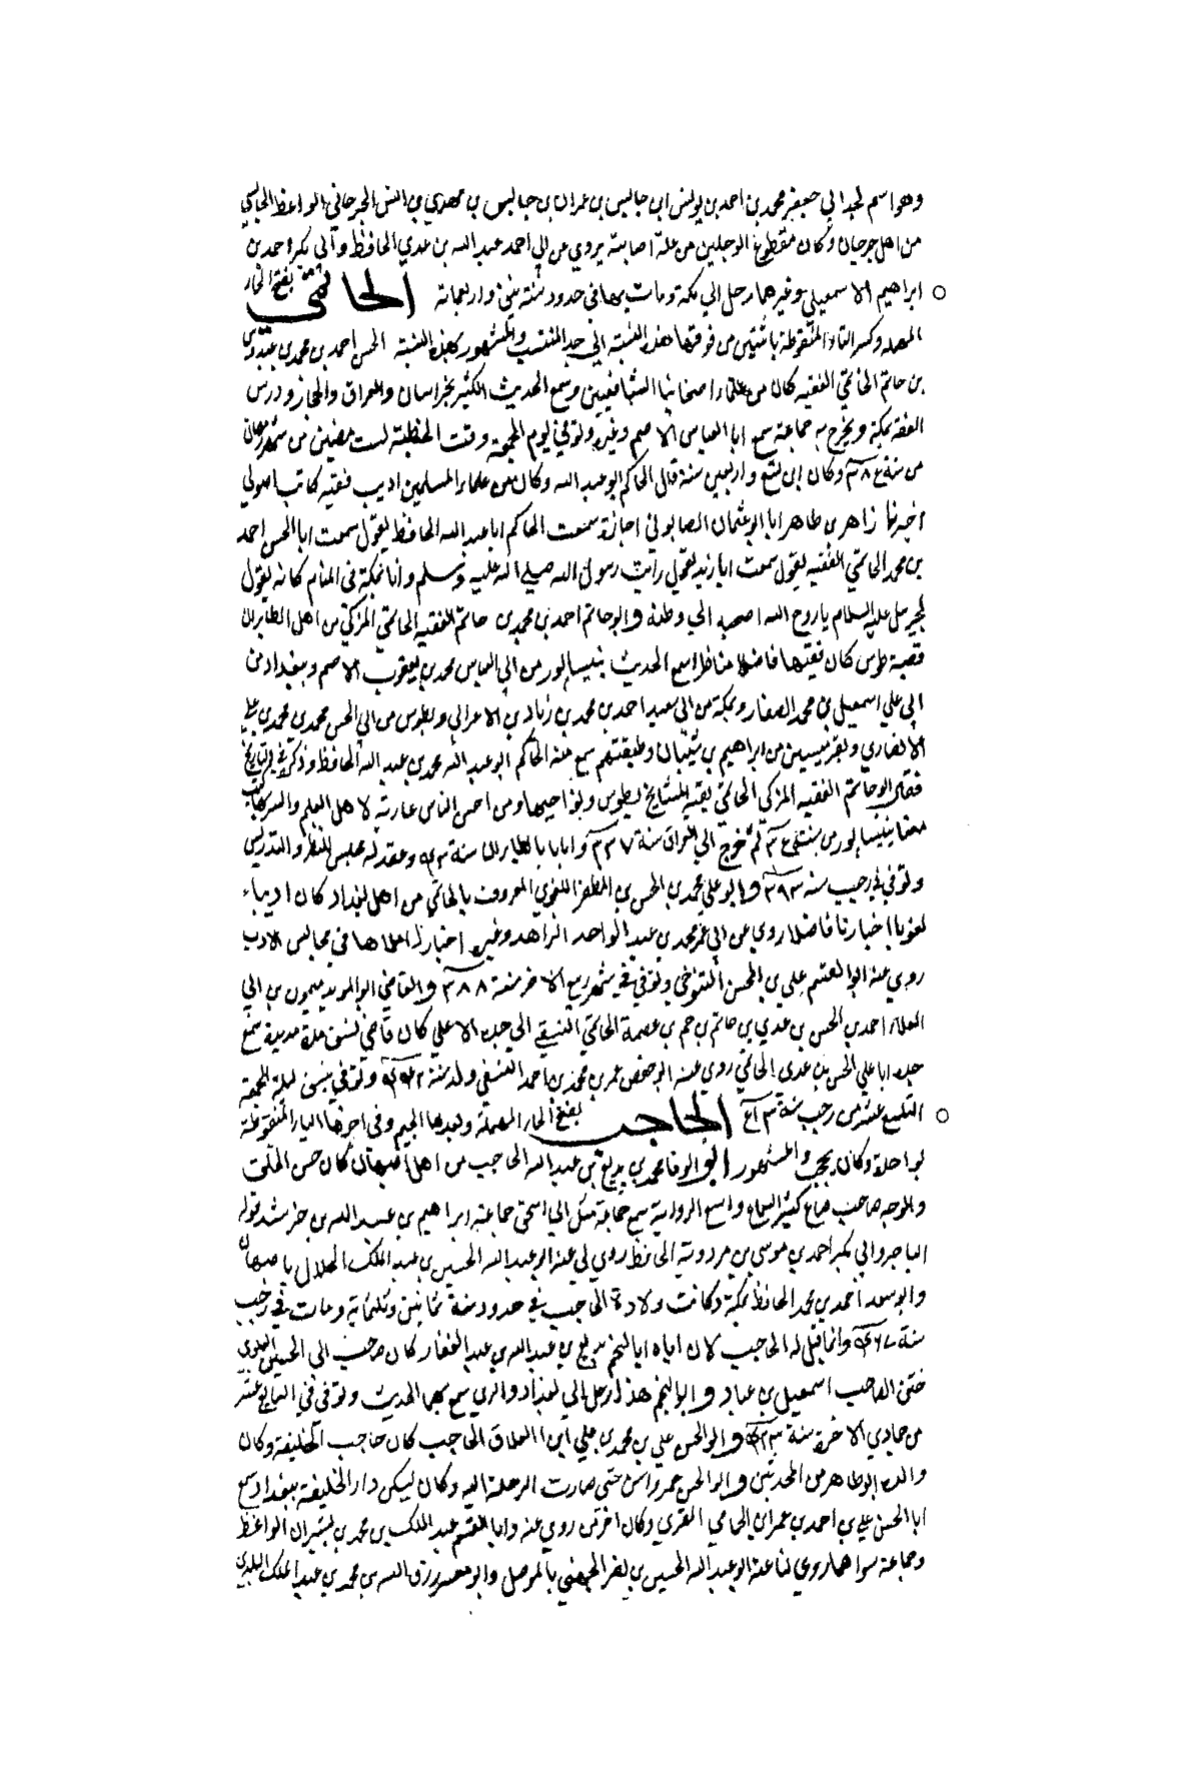 وهو اسم لجد ابي جعفر محمد بن احمد بن يونس ابن حابس بن عمران بن حابس بن مهدي بن انس الجرجاني الواعظ الحابسي
من اهل جرجان وكان مقطوع الرجلين من علة اصابته يروي عن ابي احمد عبد الله بن عدي الحافظ وابي بكر احمد بن
ابراهيم الاسمعيلي وغيرهما رحل الي مكة ومات بها في حدود سنة واربعمائة الحاتمي بفتح الحاء
المهملة وكسر التاء المنقوطة باثنتين من فوقها هذه النسبة الي جد المنتسب والمشهور بهذه النسبة الحسن احمد بن محمد بن عبدوس
بن حاتم الحاتمي الفقيه كان من علماء اصحابنا الشافعيين وسمع الحديث الكثير بخراسان والعراق والحجاز ودرس
الفقه بمكة وتخرج به جماعة سمع ابا العباس الاصم وغيره وتوفي يوم الجمعة وقت الخطبة لست مضين من شهر رمضان
من سنة وكان ابن تسع واربعين سنة قال الحاكم ابو عبد الله وكان من علماء المسلمين اديب فقيه كاتب اصولي
اخبرنا زاهر بن طاهر ابا ابو عثمان الصابوني اجازة سمعت الحاكم ابا عبد الله الحافظ يقول سمعت ابا الحسن احمد
بن محمد الحاتمي الفقيه يقول سمعت ابا زيد يقول رايت رسول الله صلي الله عليه وسلم وانا بمكة في المنام كانه يقول
لجبريل عليه السلام يا روح الله اصحبه الي وطنه وابو حاتم احمد بن محمد بن حاتم الفقيه الحاتمي المزكي من اهل الطابران
قصبة طوس كان فقيها فاضلا مناظرا سمع الحديث بنيسابور من ابي العباس محمد بن يعقوب الاصم وببغداد من
ابي علي اسمعيل بن محمد الصفار وبمكة من ابي سعيد احمد بن محمد بن زياد بن الاعرابي وبطوس من ابي الحسن محمد بن محمد بن علي
الانصاري وبقرميسين من ابراهيم بن شيبان وطبقتهم سمع منه الحاكم ابو عبد الله محمد بن عبد الله الحافظ وذكره في التاريخ
فقال ابو حاتم الفقيه المزكي الحاتمي بقية المشايخ بطوس ونواحيها ومن احسن الناس عارية لاهل العلم كتب
معنا بنيسابور من سنة ثم خرج الي العراق سنة ٣٣٧ بالطابران سنة وعقد له مجلس النظر والتدريس
وتوفي في رجب سنة ٣٩٣ وابو علي محمد بن الحسن بن المظفر اللغوي المعروف بالحاتمي من اهل بغداد كان اديباء
لغويا اخباريا فاضلا روي عن ابي عمر محمد بن عبد الواحد الزاهد وغيره اخبارا املاها في مجالس الادب
روي عنه ابو القسم علي بن المحسن التنوخي وتوفي في شهر ربيع الاخر سنة ٣٨٨ والقاضي ابو المويد ميمون بن ابي
العلاء احمد بن الحسن بن عدي بن حاتم بن حم بن عصمة الحاتمي النسفي الي جده الاعلي كان قاضي نسف مدة مديدة سمع
جده ابا علي الحسن بن عدي الحاتمي روي عنه ابو حفص عمر بن محمد بن احمد النسفي ولد سنة وتوفي بنسف ليلة الجمعة
التاسع عشر من رجب سنة الحاجب بفتح الحاء المهملة وبعدها الجيم وفي اخرها الباء المنقوطة
بواحدة وكان يحجب والمشهور ابو الوفا محمد بن بديع بن عبد الله الحاجب من اهل اصبهان كان حسن الخلق
والوجه صاحب ضياع كثير السماع واسع الرواية سمع جماعة مثل ابي اسحق ابراهيم بن عبد الله بن خرشيد قوله
التاجر وابي بكر احمد بن موسي بن مردويه الحافظ روي لي عنه ابو عبد الله الحسين بن عبد الملك الخلال باصبهان
وابو سعد احمد بن محمد الحافظ بمكة وكانت ولادة الحاجب في حدود سنة ثمانين وثلثمائة ومات في رجب
سنة وانما قيل له الحاجب لان اباه ابا النجم بديع بن عبد الله بن عبد الغفار كان صاحب ابي الحسين العلوي
ختن الصاحب اسمعيل بن عباد وابو النجم هذا رحل الي بغداد والري سمع بها الحديث وتوفي في السابع عشر
من جمادي الاخرة سنة وابو الحسن علي بن محمد بن علي ابن العلاف الحاجب كان حاجب الخليفة وكان
والده ابو طاهر من المحدثين وابو الحسن عمر واسن حتى صارت الرحلة اليه وكان يسكن دار الخليفة ببغداد سمع
ابا الحسن علي بن احمد بن عمر ابن الحمامي المقري وكان اخر من روي عنه وابا القسم عبد الملك بن محمد بن بشران الواعظ
وجماعة سواهما روي لنا عنه ابو عبد الله الحسين بن نصر الجهني بالموصل وابو معمر رزق الله بن محمد بن عبد الملك البلدي